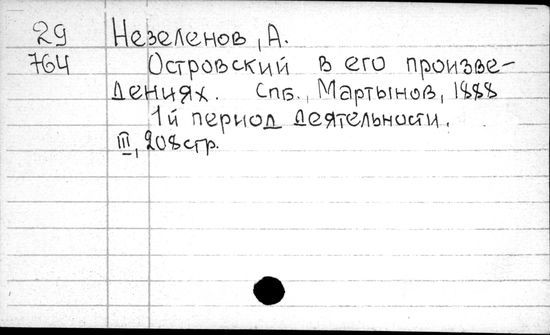 29 Незеленов, А.
764 Островский в его произве-
дениях. Спб., Мартынов, 1888
1й период деятельности.
III, 208стр.